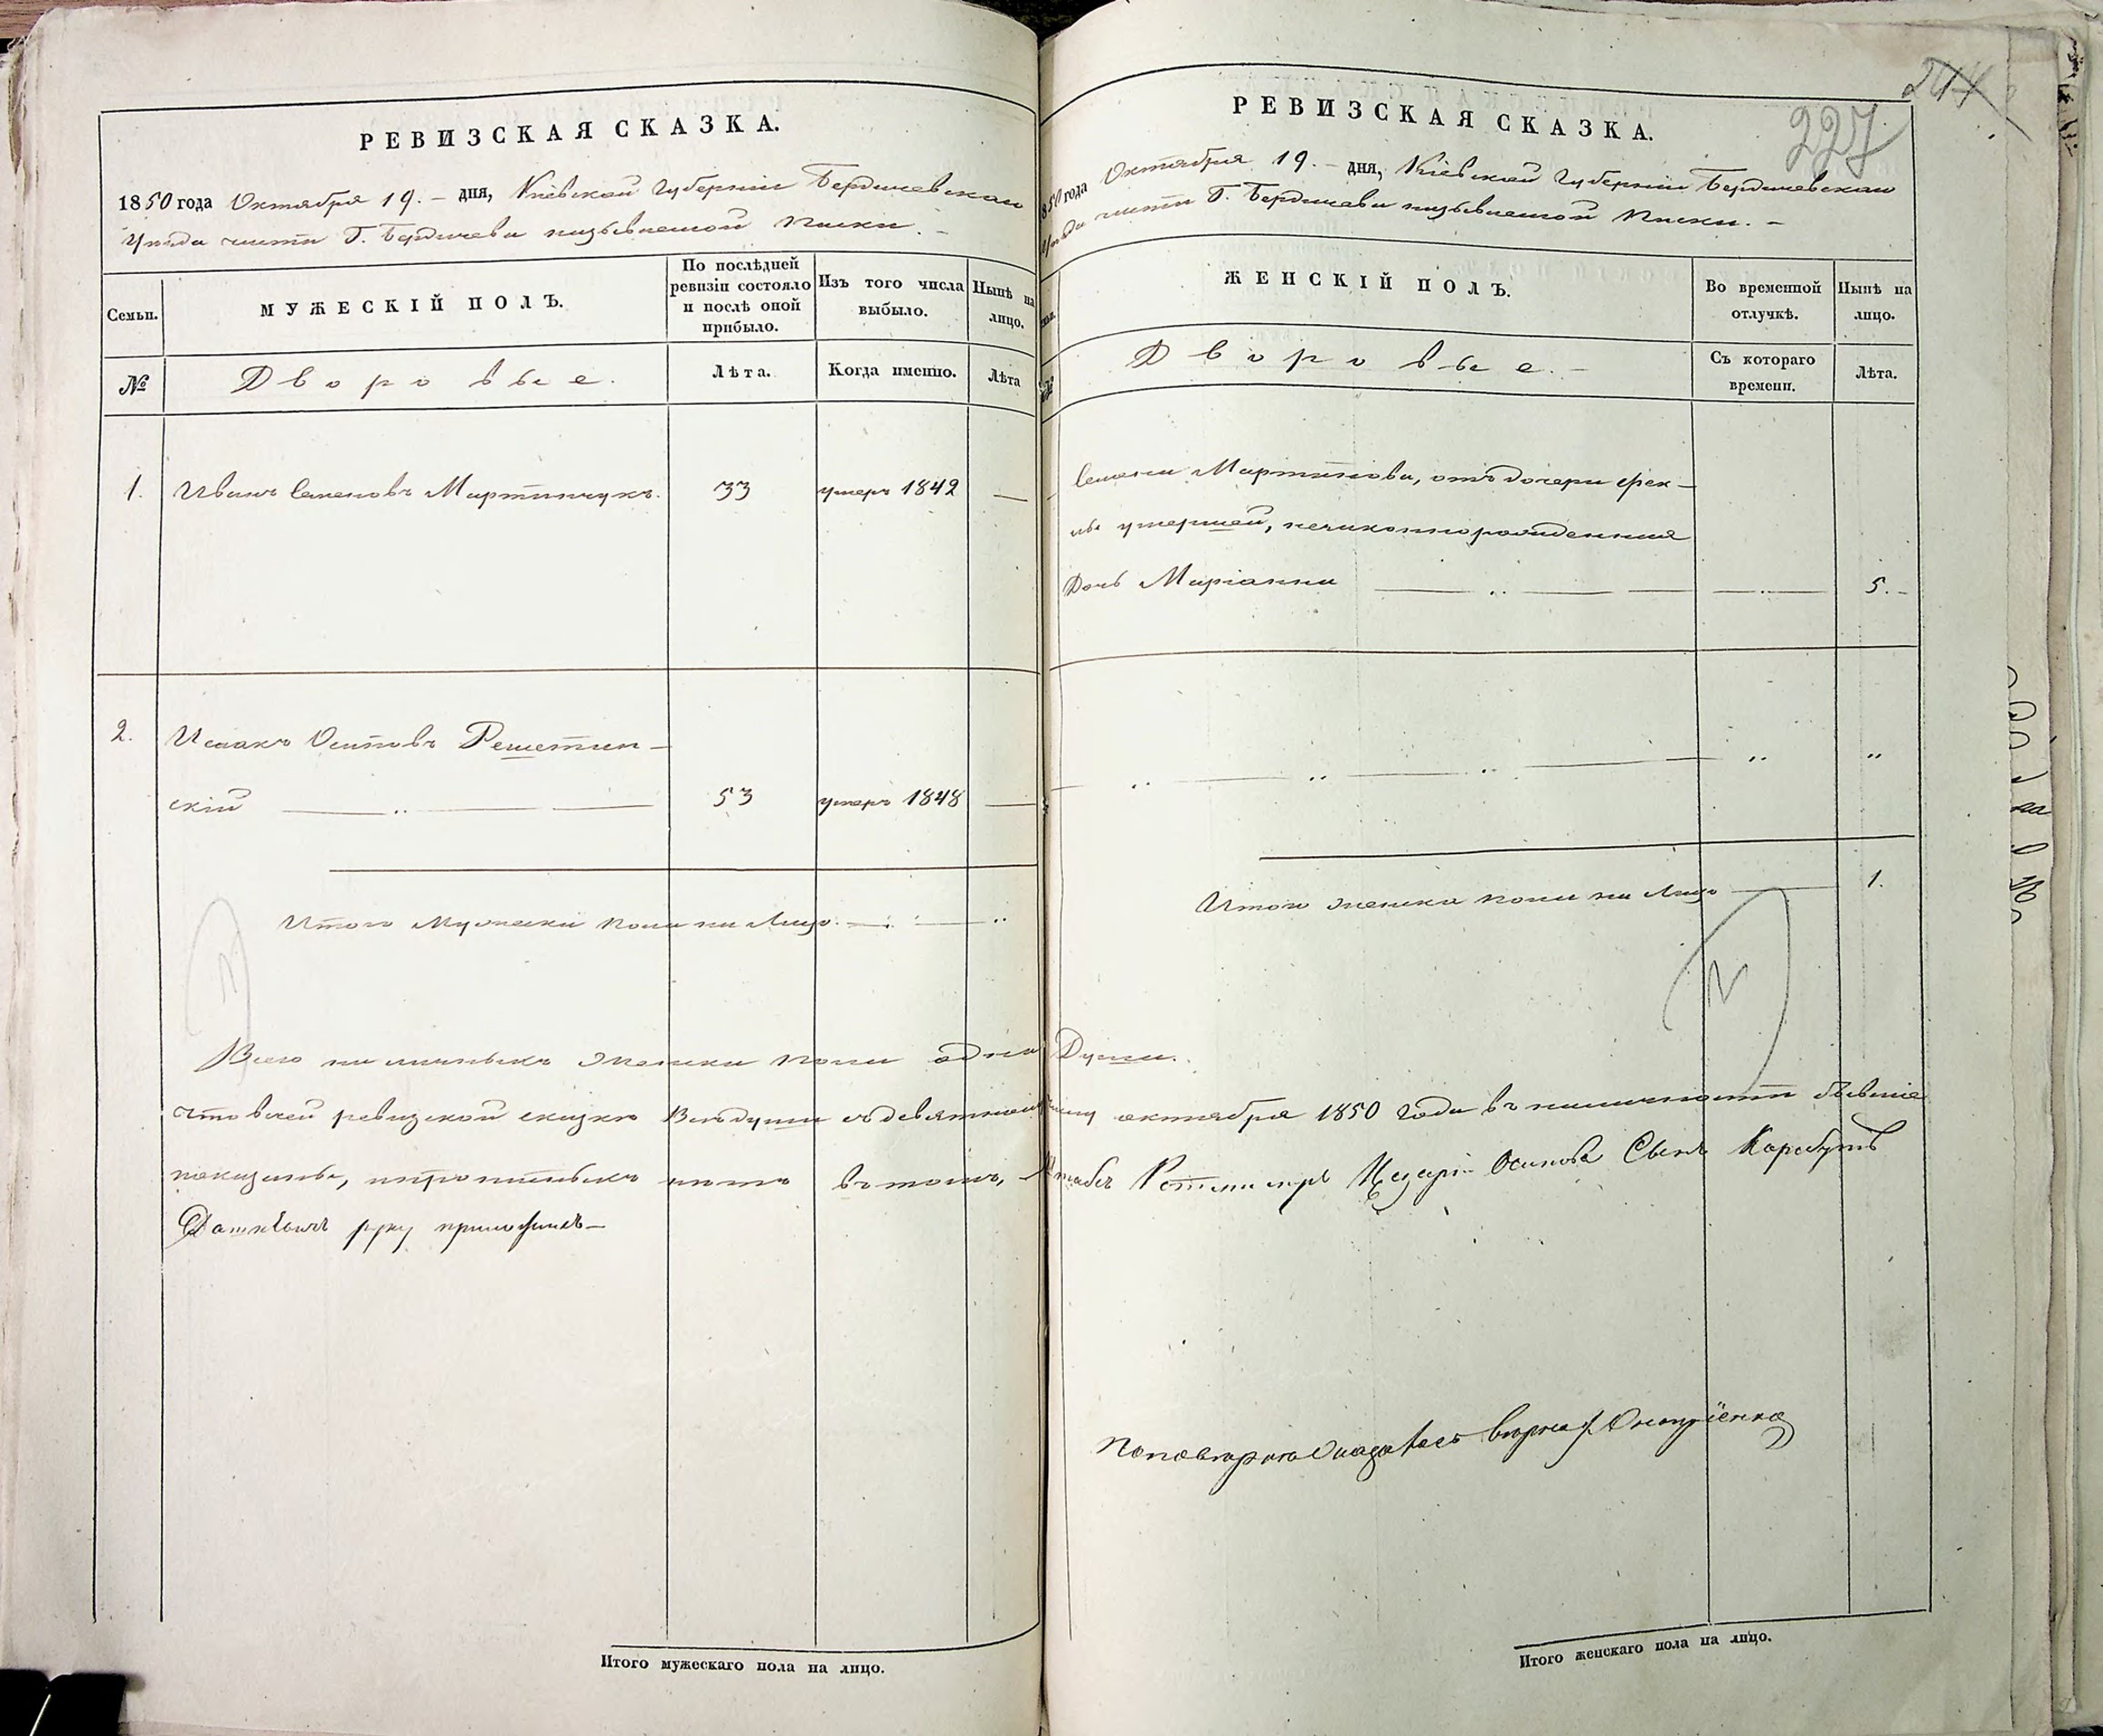 РЕВИЗСКАЯ СКАЗКА.
1850 года Октября 19. – дня, Кіевской Губерніи Бердичевскаго
Уѣзда части Г. Бердичева называемой Пески. –
Семьи.
МУЖЕСКІЙ ПОЛЪ.
По послѣдней ревизіи состояло и послѣ оной прибыло.
Изъ того числа выбыло.
Нынѣ на лицо.
№
Дворовые.
Лѣта.
Когда именно.
Лѣта
1. Иванъ Семеновъ Мартинчукъ. 33 умеръ 1842 —
2. Исаакъ Осиповъ Решетин-
скій 53 умеръ 1848 —
Итого Мужеска пола на Лицо.
Всего наличныхъ женска пола одна Душа.
Что всей ревизской сказкѣ Всѣ души съ девятнадцатаго октября 1850 года въ наличности бывшіе
показаны, и прописныхъ нѣтъ въ томъ, Штабъ Ротмистръ Цезарій Осиповъ Сынъ Корибутъ
Дашкевичъ руку приложилъ –
Итого мужескаго пола на лицо.
244
227
РЕВИЗСКАЯ СКАЗКА.
1850 года Октября 19. – дня, Кіевской Губерніи Бердичевскаго
Уѣзда части Г. Бердичева называемой Пески. –
ЖЕНСКІЙ ПОЛЪ.
Во временной отлучкѣ.
Нынѣ на лицо.
Дворовые. –
Съ котораго времени.
Лѣта.
Семена Мартинова, отъ дочери Фек-
лы умершей, незаконнорожденная
Дочь Маріанна 5. –
Итого женска пола на Лицо 1.
По повѣркѣ оказалась вѣрною
Итого женскаго пола на лицо.